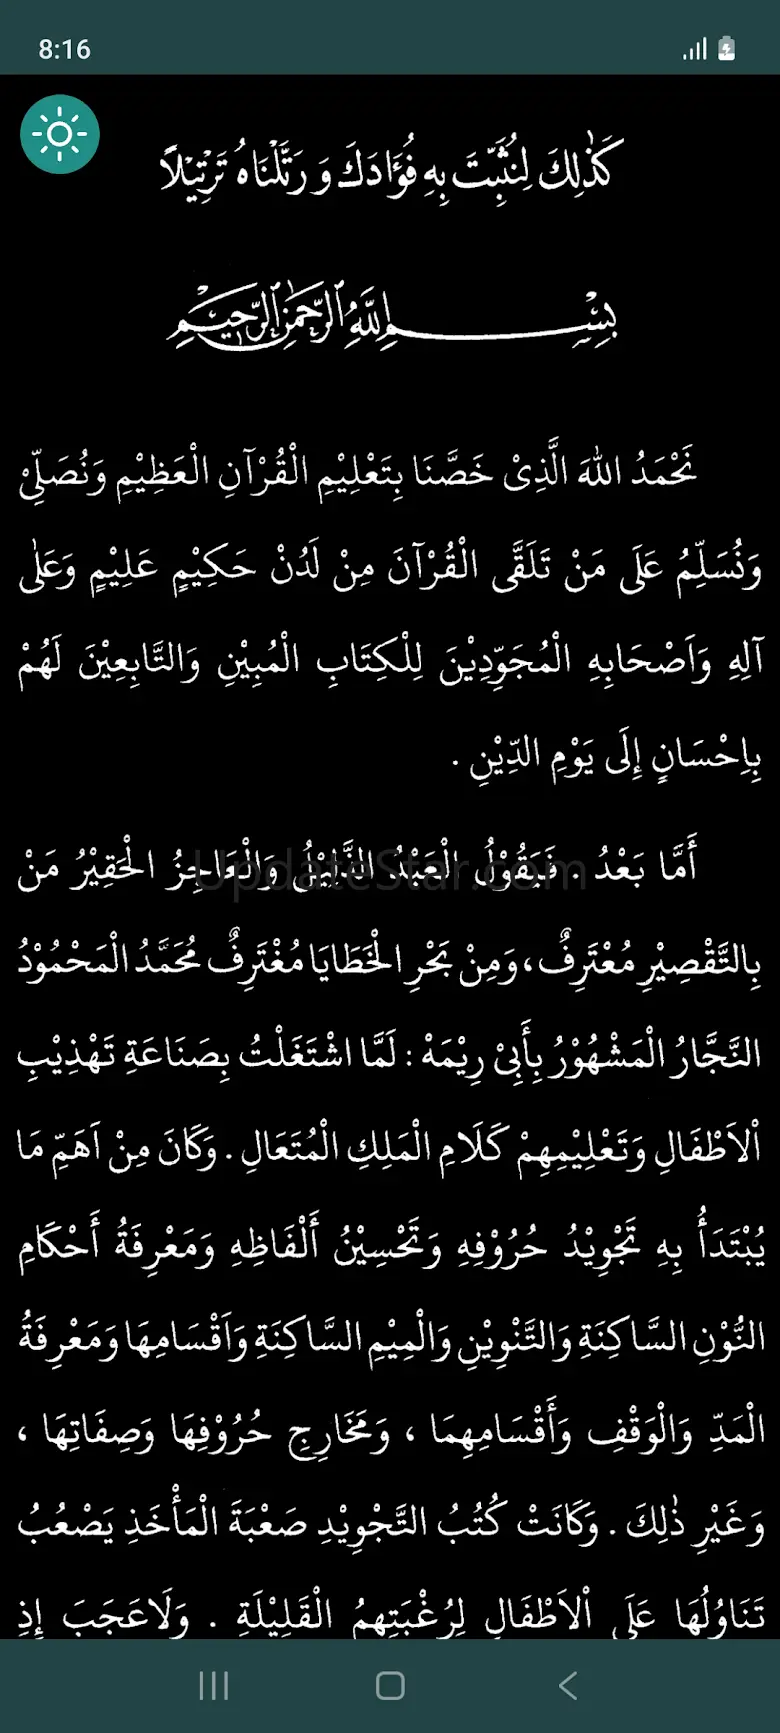 8:16
كَذٰلِكَ لِنُثَبِّتَ بِهِ فُؤَادَكَ وَرَتَّلْنَاهُ تَرْتِيْلًا
بِسْمِ اللهِ الرَّحْمٰنِ الرَّحِيْمِ
نَحْمَدُ اللهَ الَّذِىْ خَصَّنَا بِتَعْلِيْمِ الْقُرْآنِ الْعَظِيْمِ وَنُصَلِّىْ
وَنُسَلِّمُ عَلَى مَنْ تَلَقَّى الْقُرْآنَ مِنْ لَدُنْ حَكِيْمٍ عَلِيْمٍ وَعَلٰى
آلِهِ وَاَصْحَابِهِ الْمُجَوِّدِيْنَ لِلْكِتَابِ الْمُبِيْنِ وَالتَّابِعِيْنَ لَهُمْ
بِاِحْسَانٍ إِلَى يَوْمِ الدِّيْنِ .
أَمَّا بَعْدُ . فَيَقُوْلُ الْعَبْدُ الذَّلِيْلُ وَالْعَاجِزُ الْحَقِيْرُ مَنْ
UpdateStar.com
بِالتَّقْصِيْرِ مُعْتَرِفٌ، وَمِنْ بَحْرِ الْخَطَايَا مُغْتَرِفٌ مُحَمَّدُ الْمَحْمُوْدُ
النَّجَّارُ الْمَشْهُوْرُ بِأَبِىْ رِيْمَهْ : لَمَّا اشْتَغَلْتُ بِصَنَاعَةِ تَهْذِيْبِ
اْلاَطْفَالِ وَتَعْلِيْمِهِمْ كَلَامِ الْمَلِكِ الْمُتَعَالِ . وَكَانَ مِنْ اَهَمِّ مَا
يُبْتَدَأُ بِهِ تَجْوِيْدُ حُرُوْفِهِ وَتَحْسِيْنُ أَلْفَاظِهِ وَمَعْرِفَةُ أَحْكَامِ
النُّوْنِ السَّاكِنَةِ وَالتَّنْوِيْنِ وَالْمِيْمِ السَّاكِنَةِ وَاَقْسَامِهَا وَمَعْرِفَةُ
الْمَدِّ وَالْوَقْفِ وَأَقْسَامِهِمَا ، وَمَخَارِجِ حُرُوْفِهَا وَصِفَاتِهَا ،
وَغَيْرِ ذٰلِكَ . وَكَانَتْ كُتُبُ التَّجْوِيْدِ صَعْبَةَ الْمَأْخَذِ يَصْعُبُ
تَنَاوُلُهَا عَلَى اْلاَطْفَالِ لِرُغْبَتِهِمُ الْقَلِيْلَةِ . وَلَاعَجَبَ إِذِ